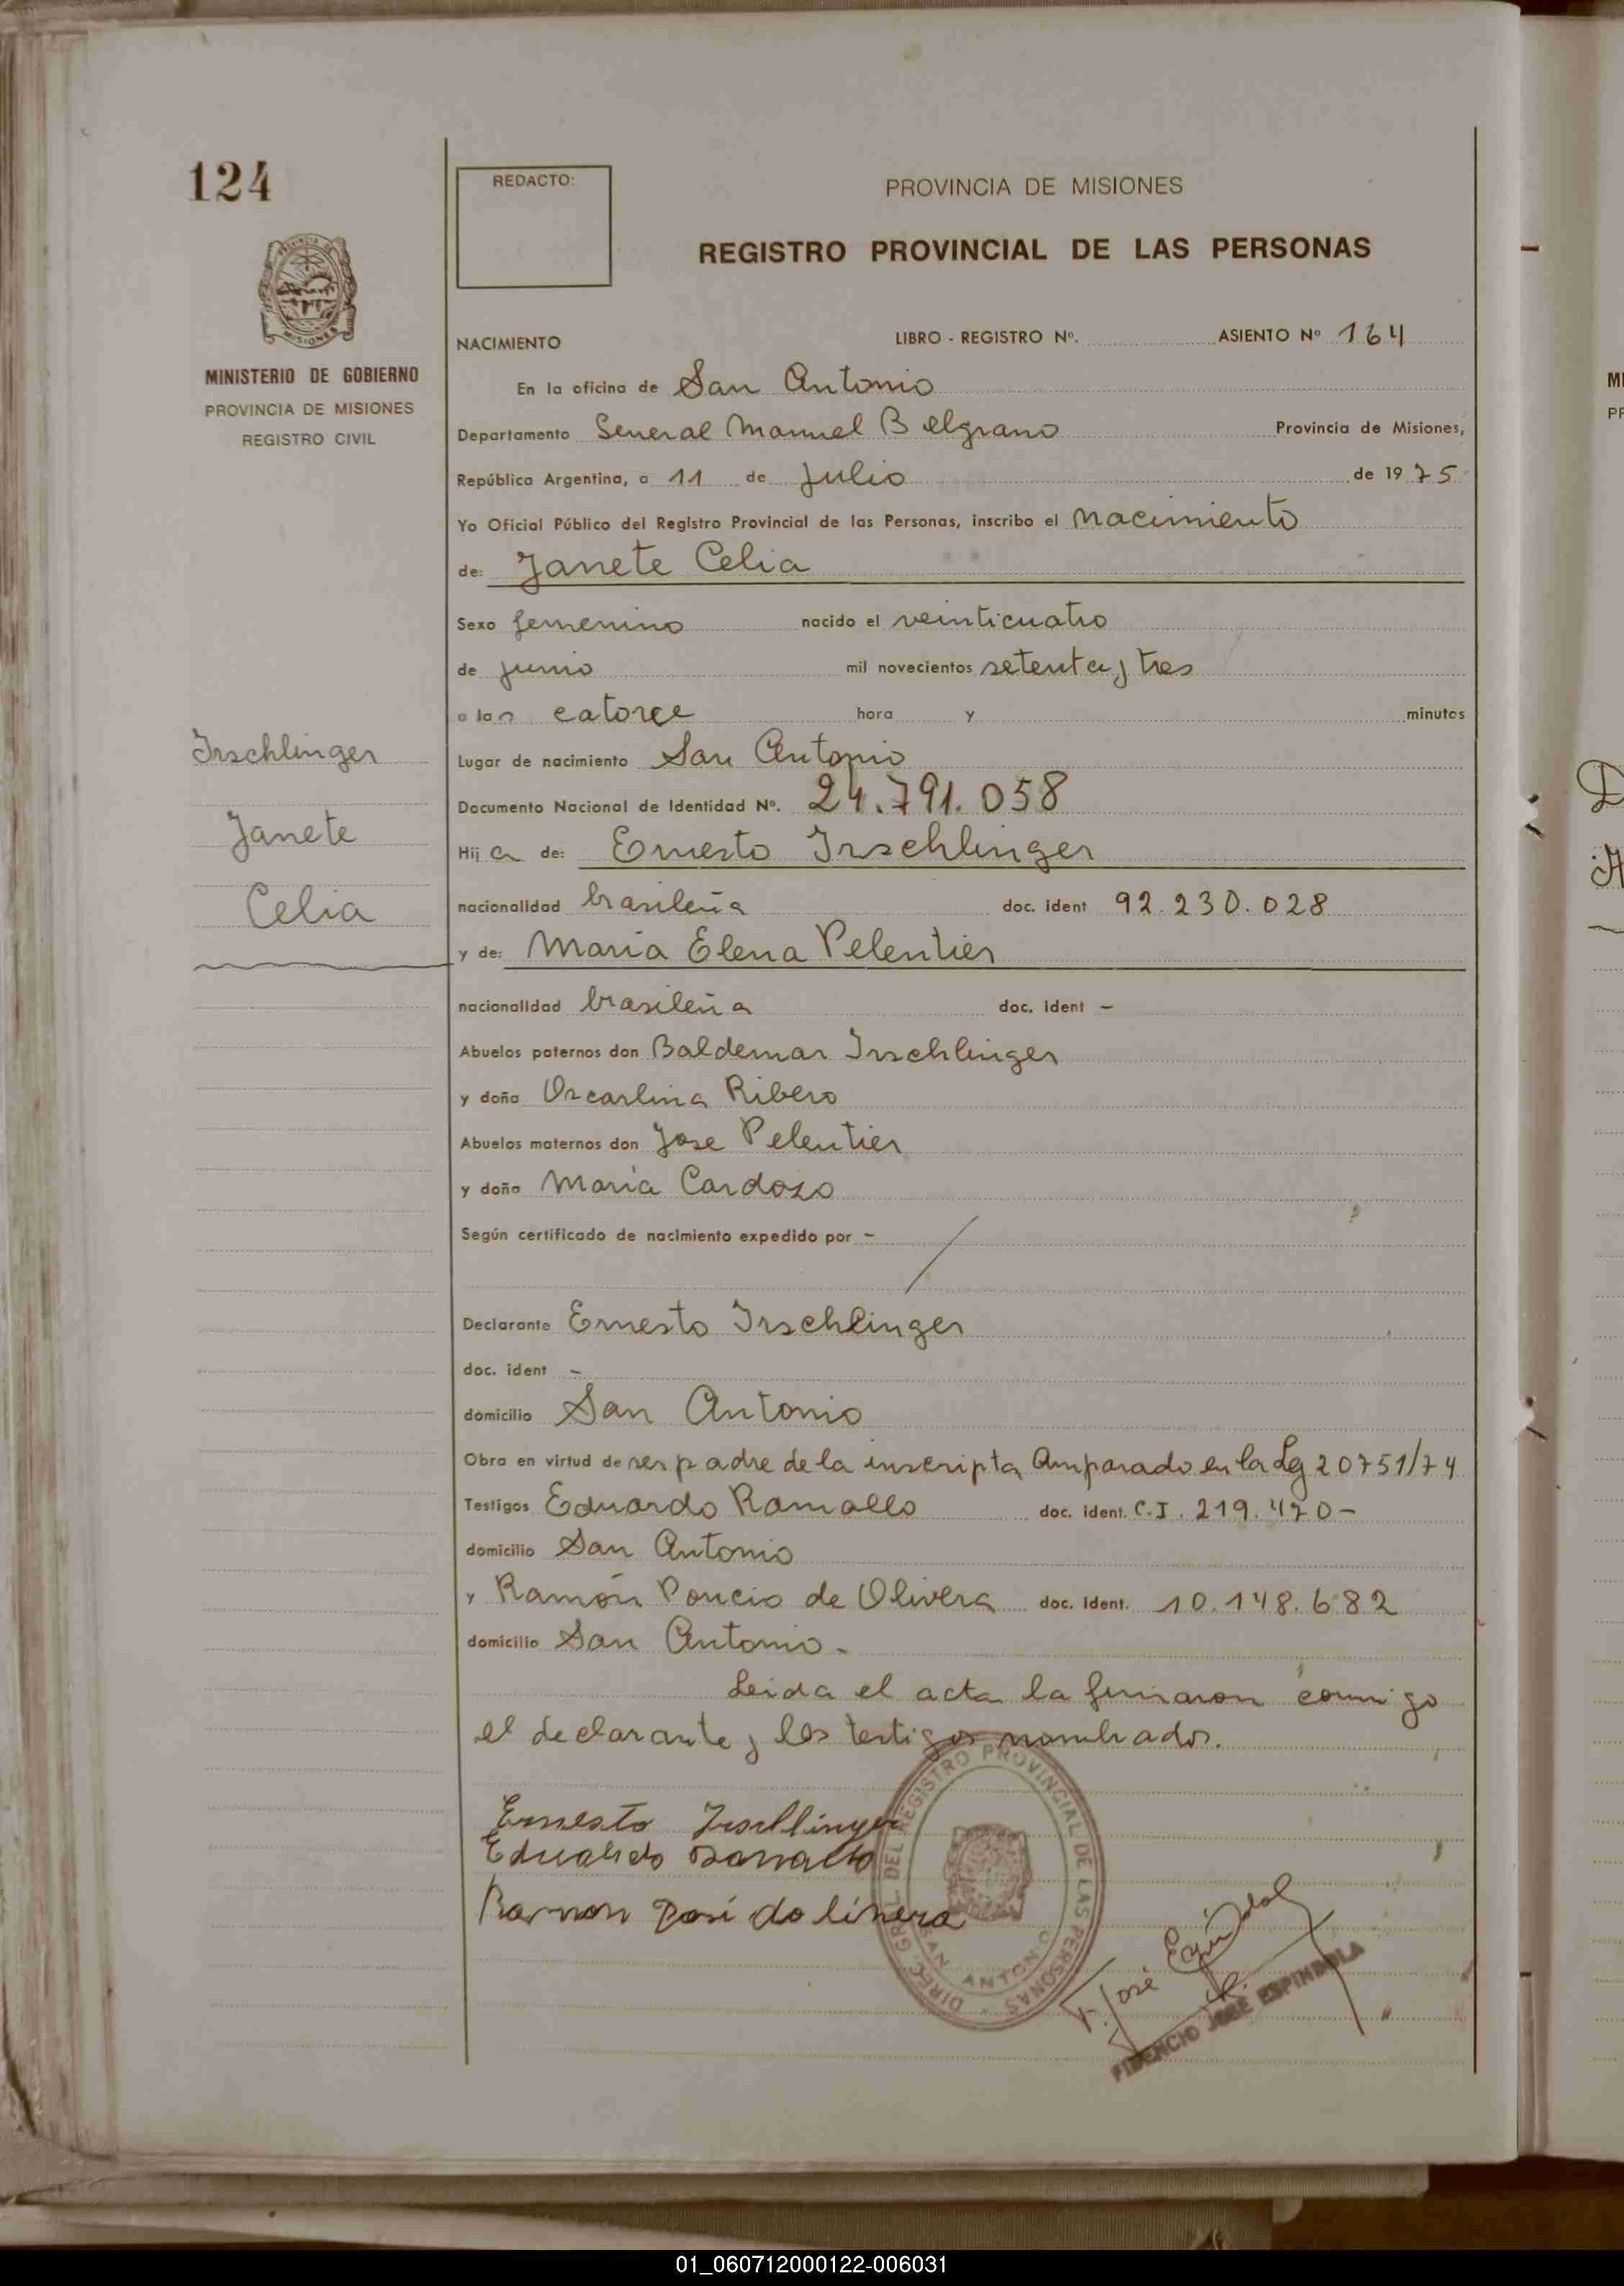 124
REDACTO:
PROVINCIA DE MISIONES
REGISTRO PROVINCIAL DE LAS PERSONAS
MINISTERIO DE GOBIERNO
PROVINCIA DE MISIONES
REGISTRO CIVIL
NACIMIENTO LIBRO - REGISTRO Nº. ASIENTO Nº 164
En la oficina de San Antonio
Departamento General Manuel Belgrano Provincia de Misiones,
República Argentina, a 11 de Julio de 1975
Yo Oficial Público del Registro Provincial de las Personas, inscribo el nacimiento
de: Janete Celia
Sexo femenino nacido el veinticuatro
de junio mil novecientos setenta y tres
a las catorce hora y minutos
Irschlinger
Janete
Celia
Lugar de nacimiento San Antonio
Documento Nacional de Identidad Nº. 24.791.058
Hija de: Ernesto Irschlinger
nacionalidad brasileña doc. ident 92.230.028
y de: Maria Elena Pelentier
nacionalidad brasileña doc. ident -
Abuelos paternos don Baldemar Irschlinger
y doña Oscarlina Ribero
Abuelos maternos don Jose Pelentier
y doña Maria Cardozo
Según certificado de nacimiento expedido por -
Declarante Ernesto Irschlinger
doc. ident -
domicilio San Antonio
Obra en virtud de ser padre de la inscripta Amparado en la Ley 20751/74
Testigos Eduardo Ramallo doc. ident. C.I. 219.470-
domicilio San Antonio
y Ramón Poncio de Olivera doc. ident. 10.148.682
domicilio San Antonio.
Leida el acta la firmaron conmigo
el declarante y los testigos nombrados.
Ernesto Irschlinger
Eduardo Ramallo
Ramon
DIREC. GRAL. DEL REGISTRO PROVINCIAL DE LAS PERSONAS
SAN ANTONIO
F. José Espíndola
FIDENCIO JOSE ESPINDOLA
01_060712000122-006031